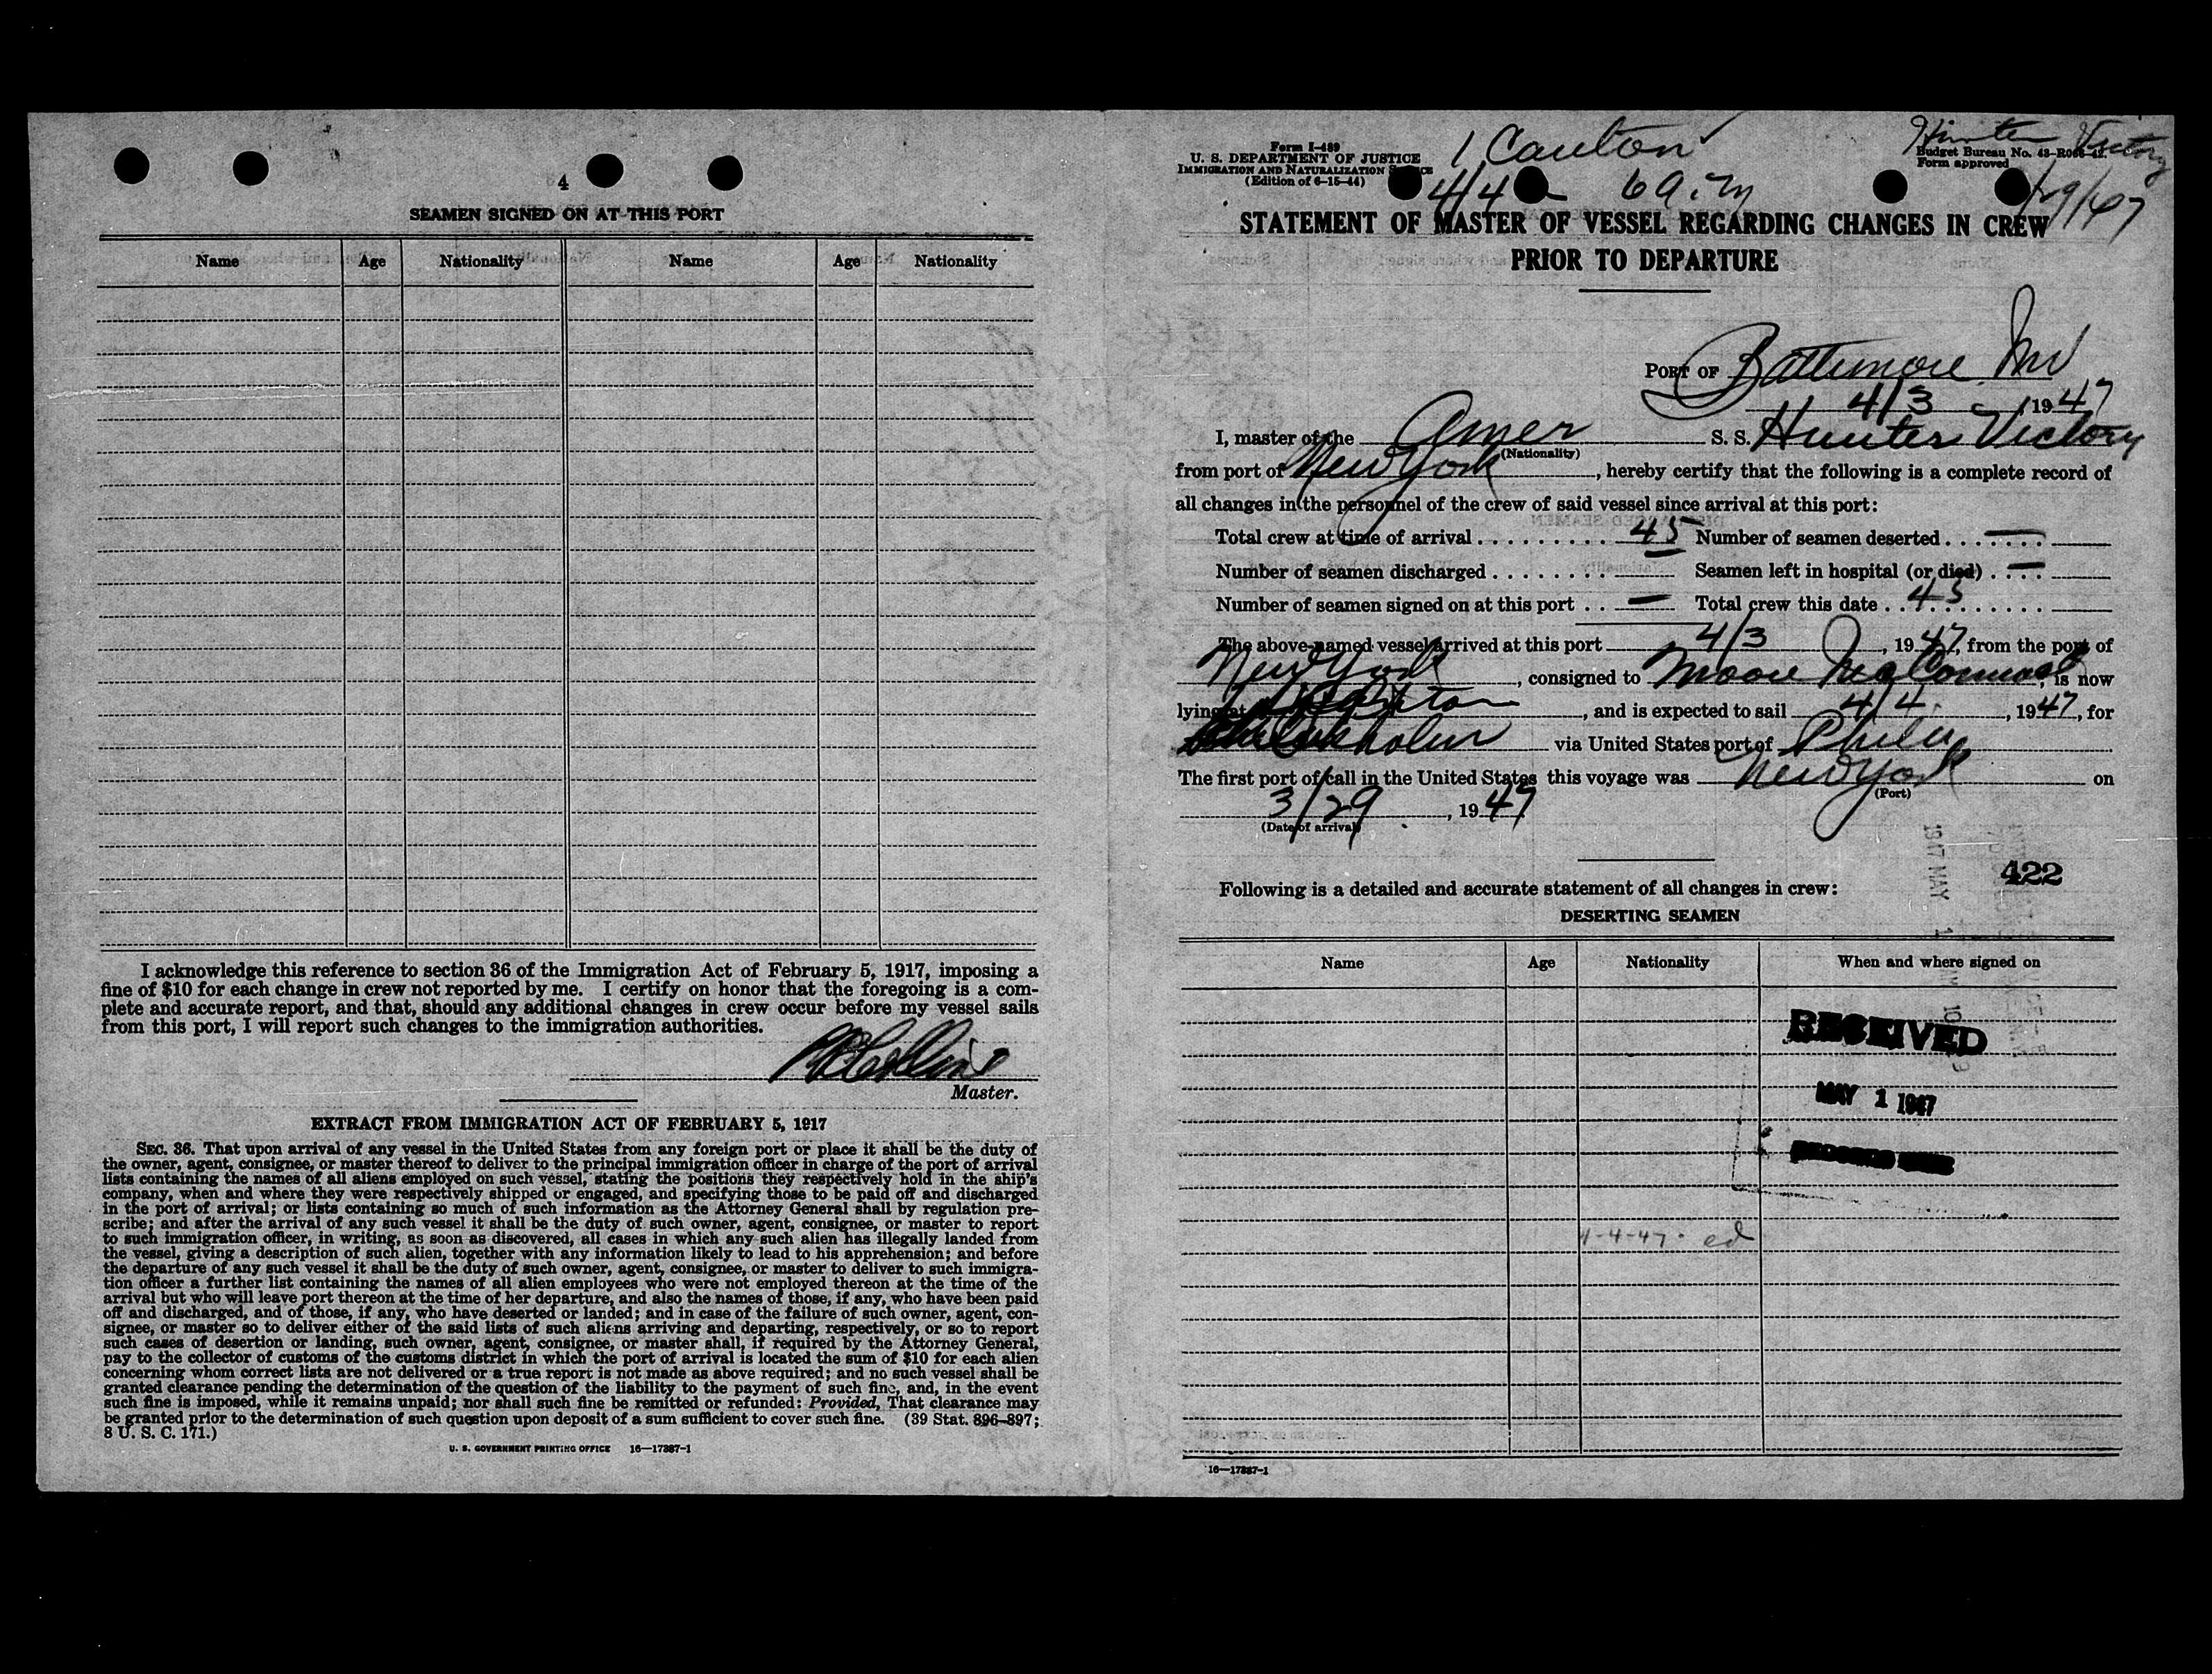 4
SEAMEN SIGNED ON AT THIS PORT
Name Age Nationality Name Age Nationality
I acknowledge this reference to section 36 of the Immigration Act of February 5, 1917, imposing a
fine of $10 for each change in crew not reported by me. I certify on honor that the foregoing is a com-
plete and accurate report, and that, should any additional changes in crew occur before my vessel sails
from this port, I will report such changes to the immigration authorities.
Master.
EXTRACT FROM IMMIGRATION ACT OF FEBRUARY 5, 1917
SEC. 36. That upon arrival of any vessel in the United States from any foreign port or place it shall be the duty of
the owner, agent, consignee, or master thereof to deliver to the principal immigration officer in charge of the port of arrival
lists containing the names of all aliens employed on such vessel, stating the positions they respectively hold in the ship's
company, when and where they were respectively shipped or engaged, and specifying those to be paid off and discharged
in the port of arrival; or lists containing so much of such information as the Attorney General shall by regulation pre-
scribe; and after the arrival of any such vessel it shall be the duty of such owner, agent, consignee, or master to report
to such immigration officer, in writing, as soon as discovered, all cases in which any such alien has illegally landed from
the vessel, giving a description of such alien, together with any information likely to lead to his apprehension; and before
the departure of any such vessel it shall be the duty of such owner, agent, consignee, or master to deliver to such immigra-
tion officer a further list containing the names of all alien employees who were not employed thereon at the time of the
arrival but who will leave port thereon at the time of her departure, and also the names of those, if any, who have been paid
off and discharged, and of those, if any, who have deserted or landed; and in case of the failure of such owner, agent, con-
signee, or master so to deliver either of the said lists of such aliens arriving and departing, respectively, or so to report
such cases of desertion or landing, such owner, agent, consignee, or master shall, if required by the Attorney General,
pay to the collector of customs of the customs district in which the port of arrival is located the sum of $10 for each alien
concerning whom correct lists are not delivered or a true report is not made as above required; and no such vessel shall be
granted clearance pending the determination of the question of the liability to the payment of such fine, and, in the event
such fine is imposed, while it remains unpaid; nor shall such fine be remitted or refunded: Provided, That clearance may
be granted prior to the determination of such question upon deposit of a sum sufficient to cover such fine. (39 Stat. 896–897;
8 U. S. C. 171.)
U. S. GOVERNMENT PRINTING OFFICE 16—17387-1
Form I-489
U. S. DEPARTMENT OF JUSTICE
IMMIGRATION AND NATURALIZATION SERVICE
(Edition of 6-15-44)
1 Canton
4/4 6 a.m
Hunter Victory
Budget Bureau No. 43-R066-42.
Form approved
/29/47
STATEMENT OF MASTER OF VESSEL REGARDING CHANGES IN CREW
PRIOR TO DEPARTURE
PORT OF Baltimore Md
4/3, 1947
I, master of the Amer S. S. Hunter Victory
(Nationality)
from port of New York, hereby certify that the following is a complete record of
all changes in the personnel of the crew of said vessel since arrival at this port:
Total crew at time of arrival 45 Number of seamen deserted —
Number of seamen discharged Seamen left in hospital (or died) —
Number of seamen signed on at this port — Total crew this date 45
The above-named vessel arrived at this port 4/3, 1947, from the port of
New York, consigned to Moore McCormack, is now
lying at Canton, and is expected to sail 4/4, 1947, for
via United States port of Phila
The first port of call in the United States this voyage was New York on
(Port)
3/29, 1947
(Date of arrival)
422
Following is a detailed and accurate statement of all changes in crew:
DESERTING SEAMEN
Name Age Nationality When and where signed on
RECEIVED
MAY 1 1947
4-4-47 ed
16—17387-1